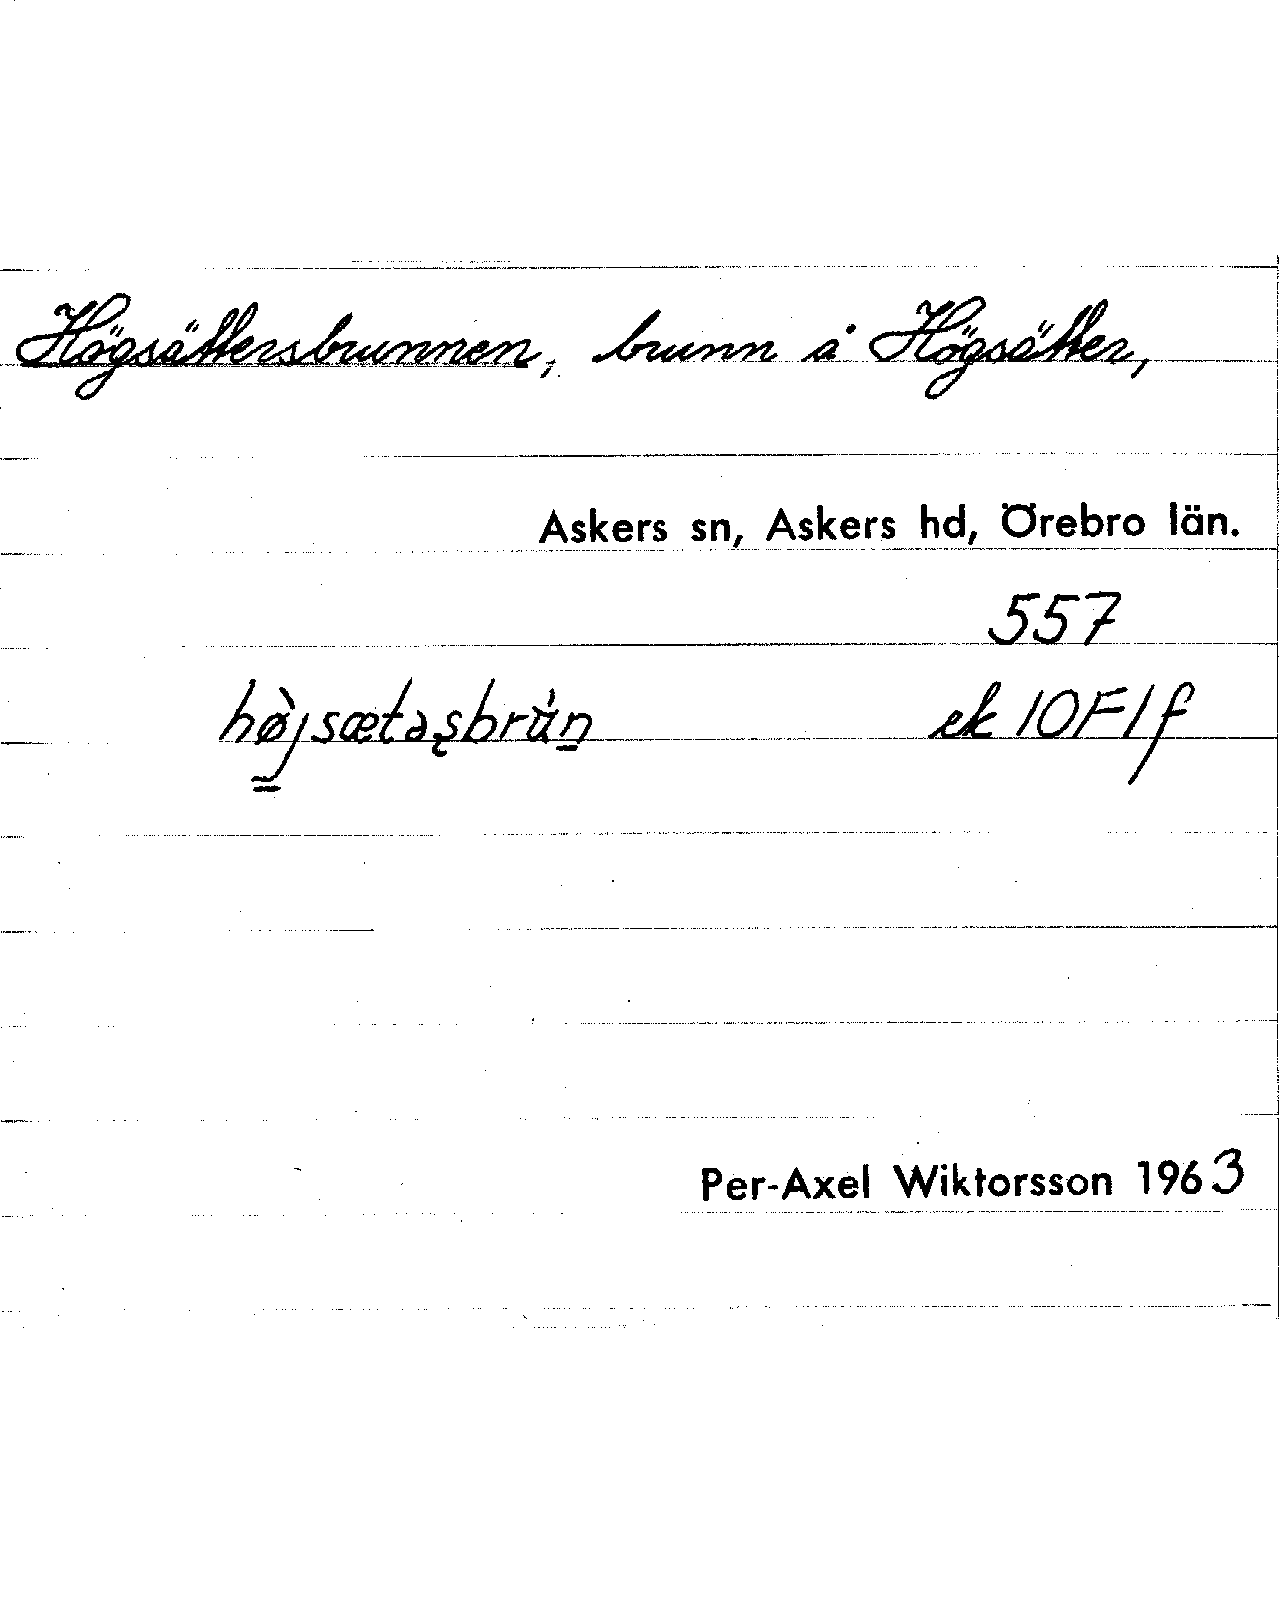 Högsättersbrunnen, brunn å Högsätter,
Askers sn, Askers hd, Örebro län.
557
hø̀jsætəʂbrùn ek 10F1f
Per-Axel Wiktorsson 1963